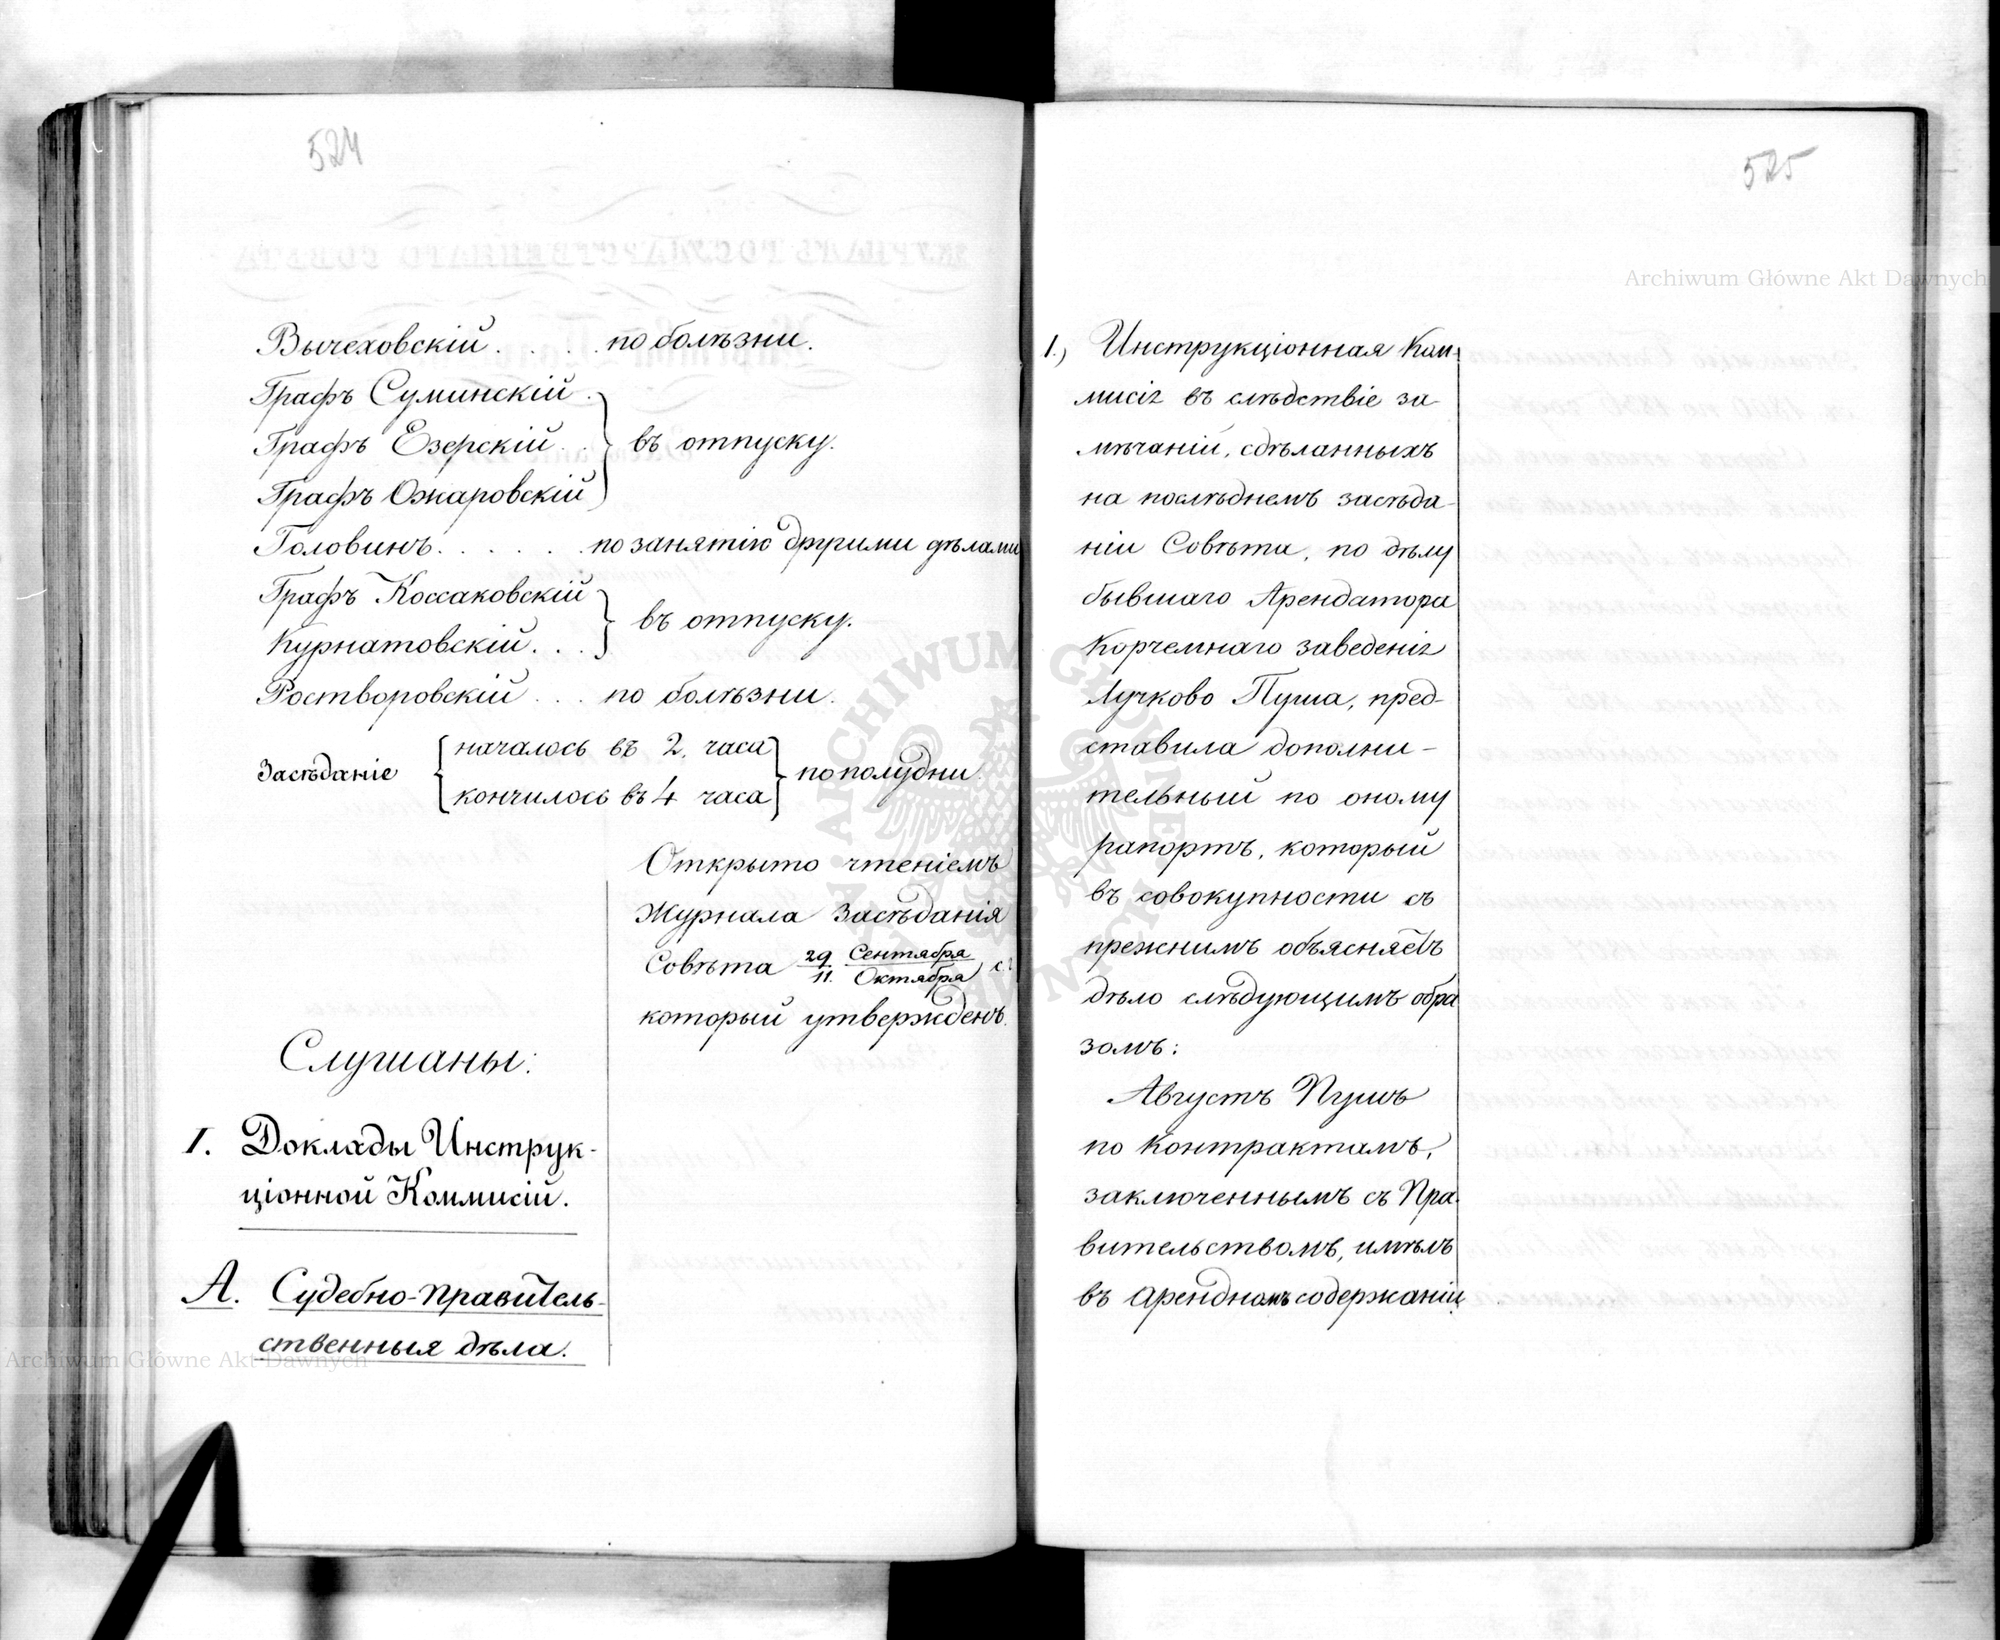 524
Вычеховскій . . . . по болѣзни.
Графъ Суминскій .
Графъ Езерскій . . } въ отпуску.
Графъ Ожаровскій
Головинъ . . . . . . по занятію другими дѣлами
Графъ Коссаковскій
Курнатовскій . . . } въ отпуску.
Ростворовскій . . . по болѣзни.
Засѣданіе { началось въ 2. часа
кончилось въ 4 часа } по полудни.
Открыто чтеніемъ
Журнала Засѣданія
Совѣта 29 Сентября / 11. Октября с.
который утвержденъ.
Слушаны:
I. Доклады Инструк-
ціонной Коммисіи.
А. Судебно-Правитель-
ственныя дѣла.
525
1.) Инструкціонная Ком-
мисія въ слѣдствіе за-
мѣчаній, сдѣланныхъ
на послѣднемъ засѣда-
ніи Совѣта, по дѣлу
бывшаго Арендатора
Корчемнаго заведенія
Лучково Пуша, пред-
ставила дополни-
тельный по оному
рапортъ, который
въ совокупности съ
прежнимъ объясняетъ
дѣло слѣдующимъ обра
зомъ:
Августъ Пушъ
по Контрактамъ,
заключеннымъ съ Пра-
вительствомъ, имѣлъ
въ арендномъ содержаніи
Archiwum Główne Akt Dawnych
Archiwum Główne Akt Dawnych